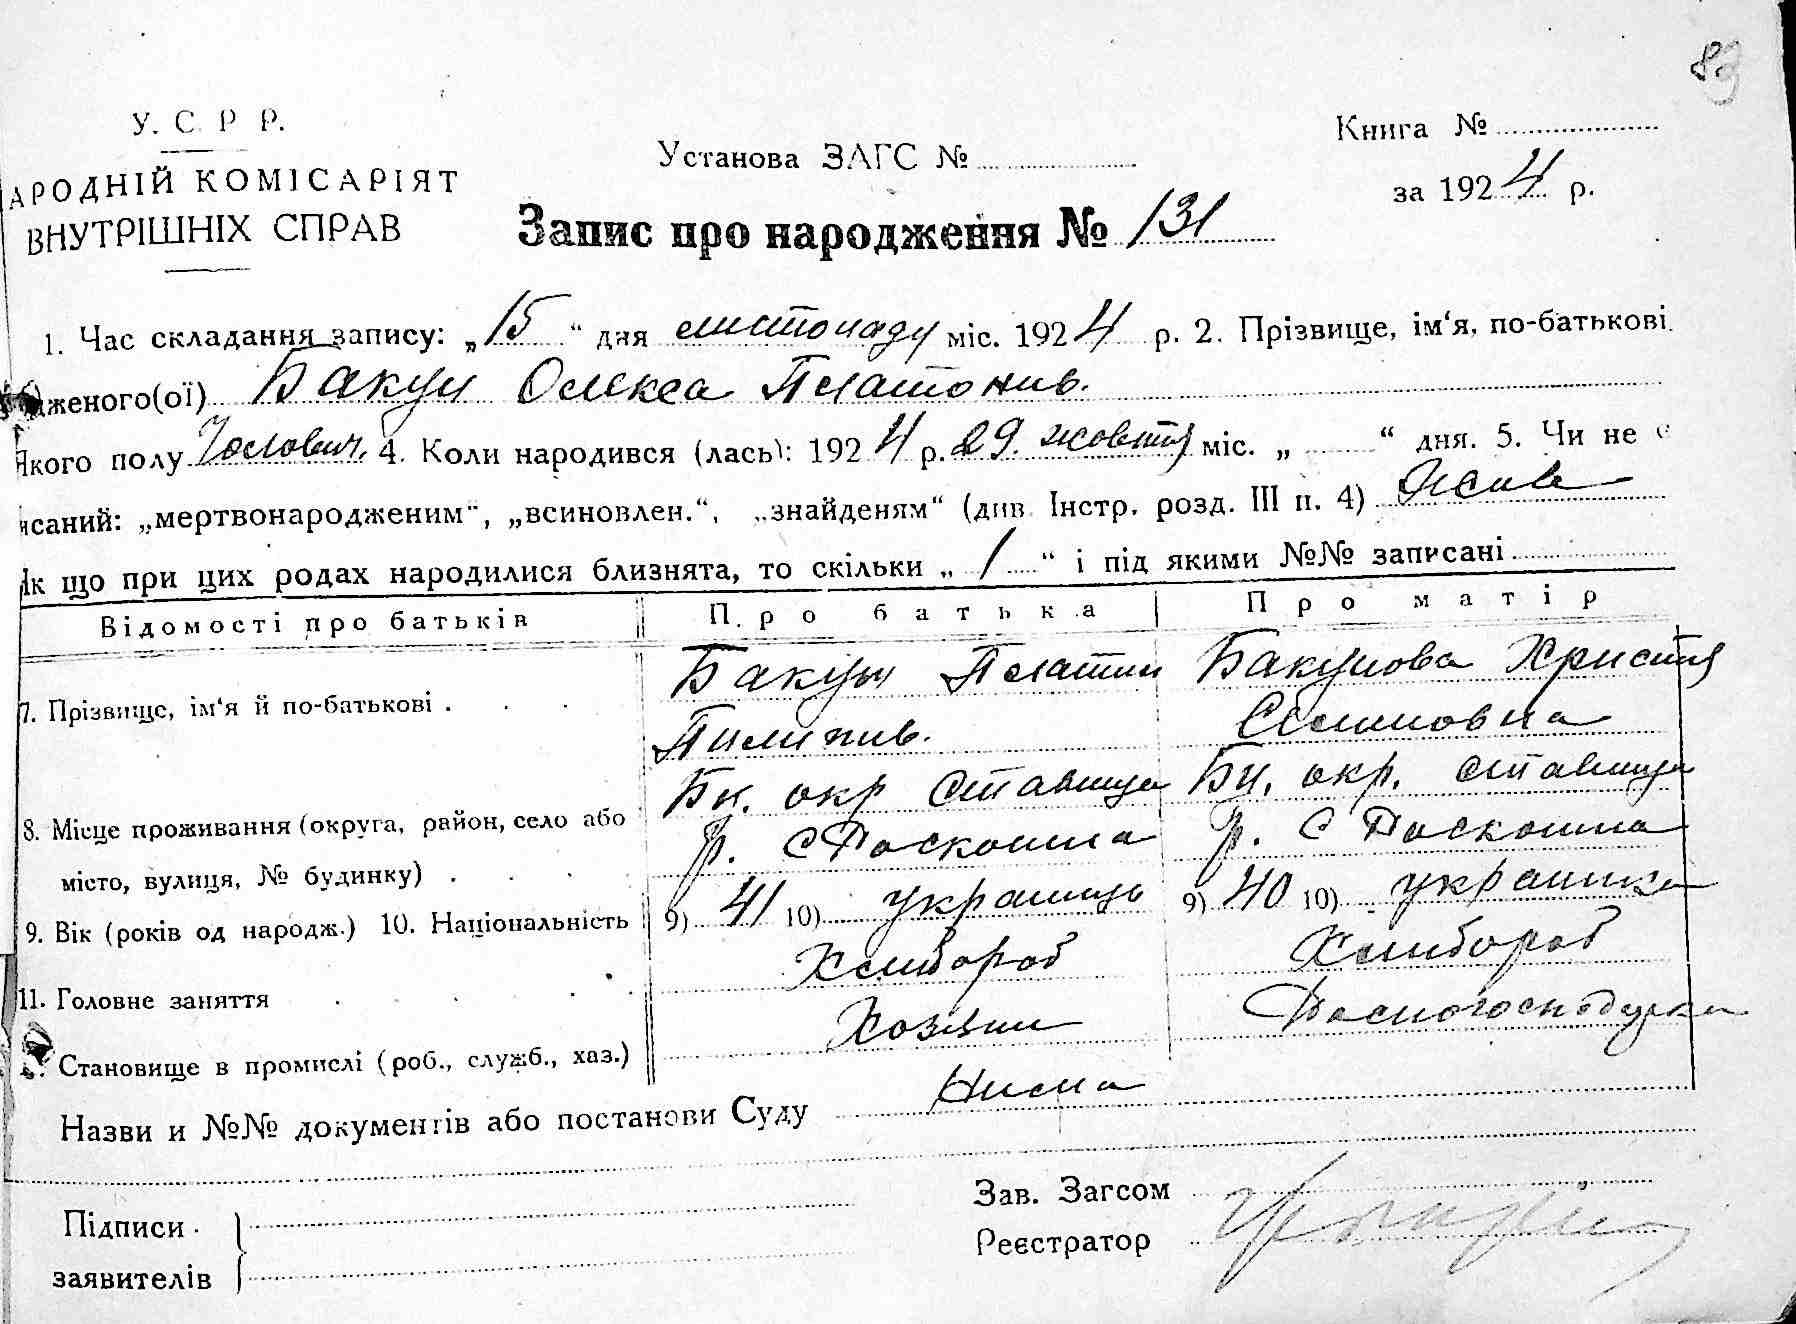 83
У. С. Р Р.
Книга №
Установа ЗАГС №
АРОДНІЙ КОМІСАРІЯТ
за 1924 р.
ВНУТРІШНІХ СПРАВ
Запис про народження № 131
1. Час складання запису: „15“ дня листопаду міс. 1924 р. 2. Прізвище, ім‘я, по-батькові
дженого(ої) Бакун Олекса Платонив.
Якого полу Чоловіч. 4. Коли народився (лась): 1924 р. 29. жовтня міс. „ “ дня. 5. Чи не є
исаний: „мертвонародженим“, „всиновлен.“, „знайденям“ (див. Інстр. розд. III п. 4)
Як що при цих родах народилися близнята, то скільки „1“ і під якими №№ записані
Відомості про батьків Про батька Про матір
7. Прізвище, ім‘я й по-батькові . . . Бакун Платон Бакунова Христя
Пилипив.
8. Місце проживання (округа, район, село або Бц. окр Ставище Бц. окр. Ставище
місто, вулиця, № будинку) . . . р. С Роскошна р. С Роскошна
9. Вік (років од народж.) 10. Національність 9) 41 10) украинець 9) 40 10) украинка
11. Головне заняття . . . Хлибороб Хлибороб
Становище в промислі (роб., служб., хаз.) Хозяин Домогосподурка
Назви и №№ документів або постанови Суду Нима
Зав. Загсом
Підписи
Реєстратор
заявителів